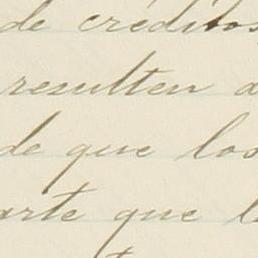 de créditos
resulten a
de que los
arte que l